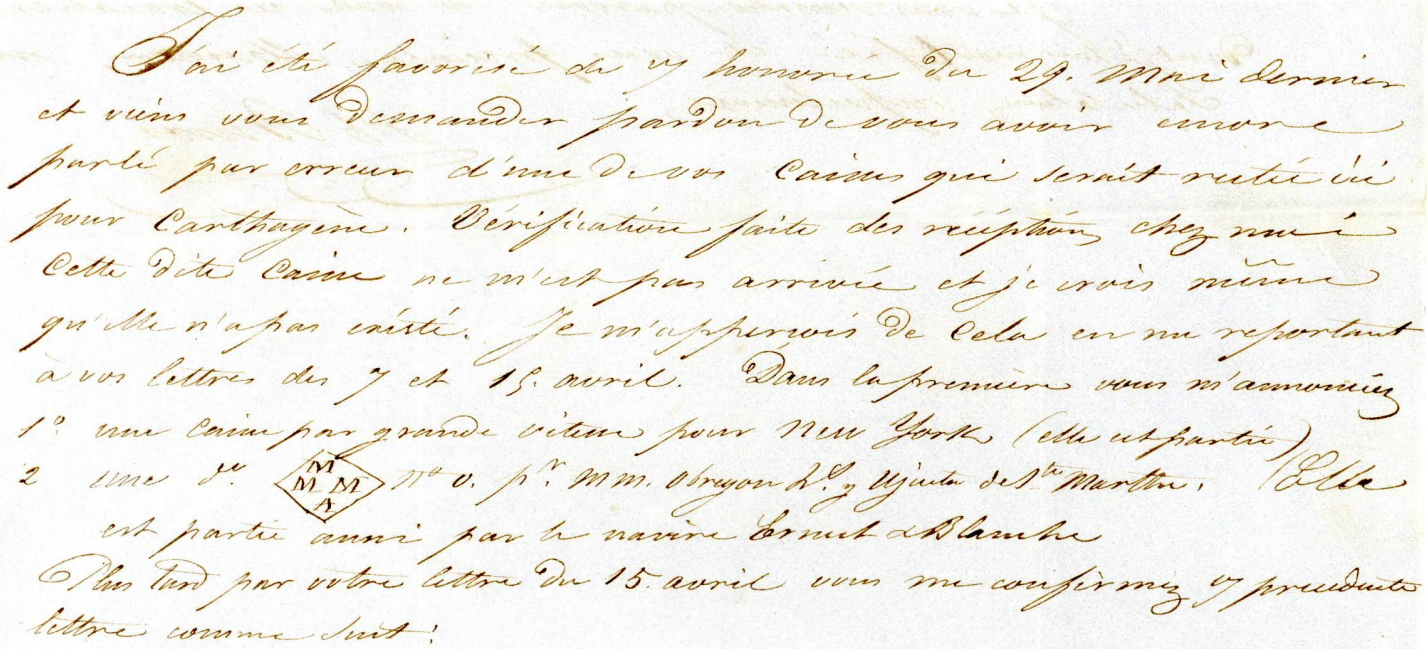 J'ai été favorisé de vs honorée du 29. Mai dernier
et viens vous demander pardon de vous avoir encore
parlé par erreur d'une de vos Caisses qui serait restée ici
pour Carthagène. Vérification faite des réceptions chez moi
Cette dite Caisse ne m'est pas arrivée et je crois même
qu'elle n'a pas existé. Je m'apperçois de Cela en me reportant
à vos lettres des 7 et 15. avril. Dans la première vous m'annonciez
1° une Caisse par grande vitesse pour New York (elle est partie)
2 une do M M M M A No 0. pr. MM. Obregon y de Ste Marthe. (Elle
est partie aussi par le navire Ernest & Blanche
Plus tard par votre lettre du 15. avril vous me confirmez vs précédente
lettre comme suit: